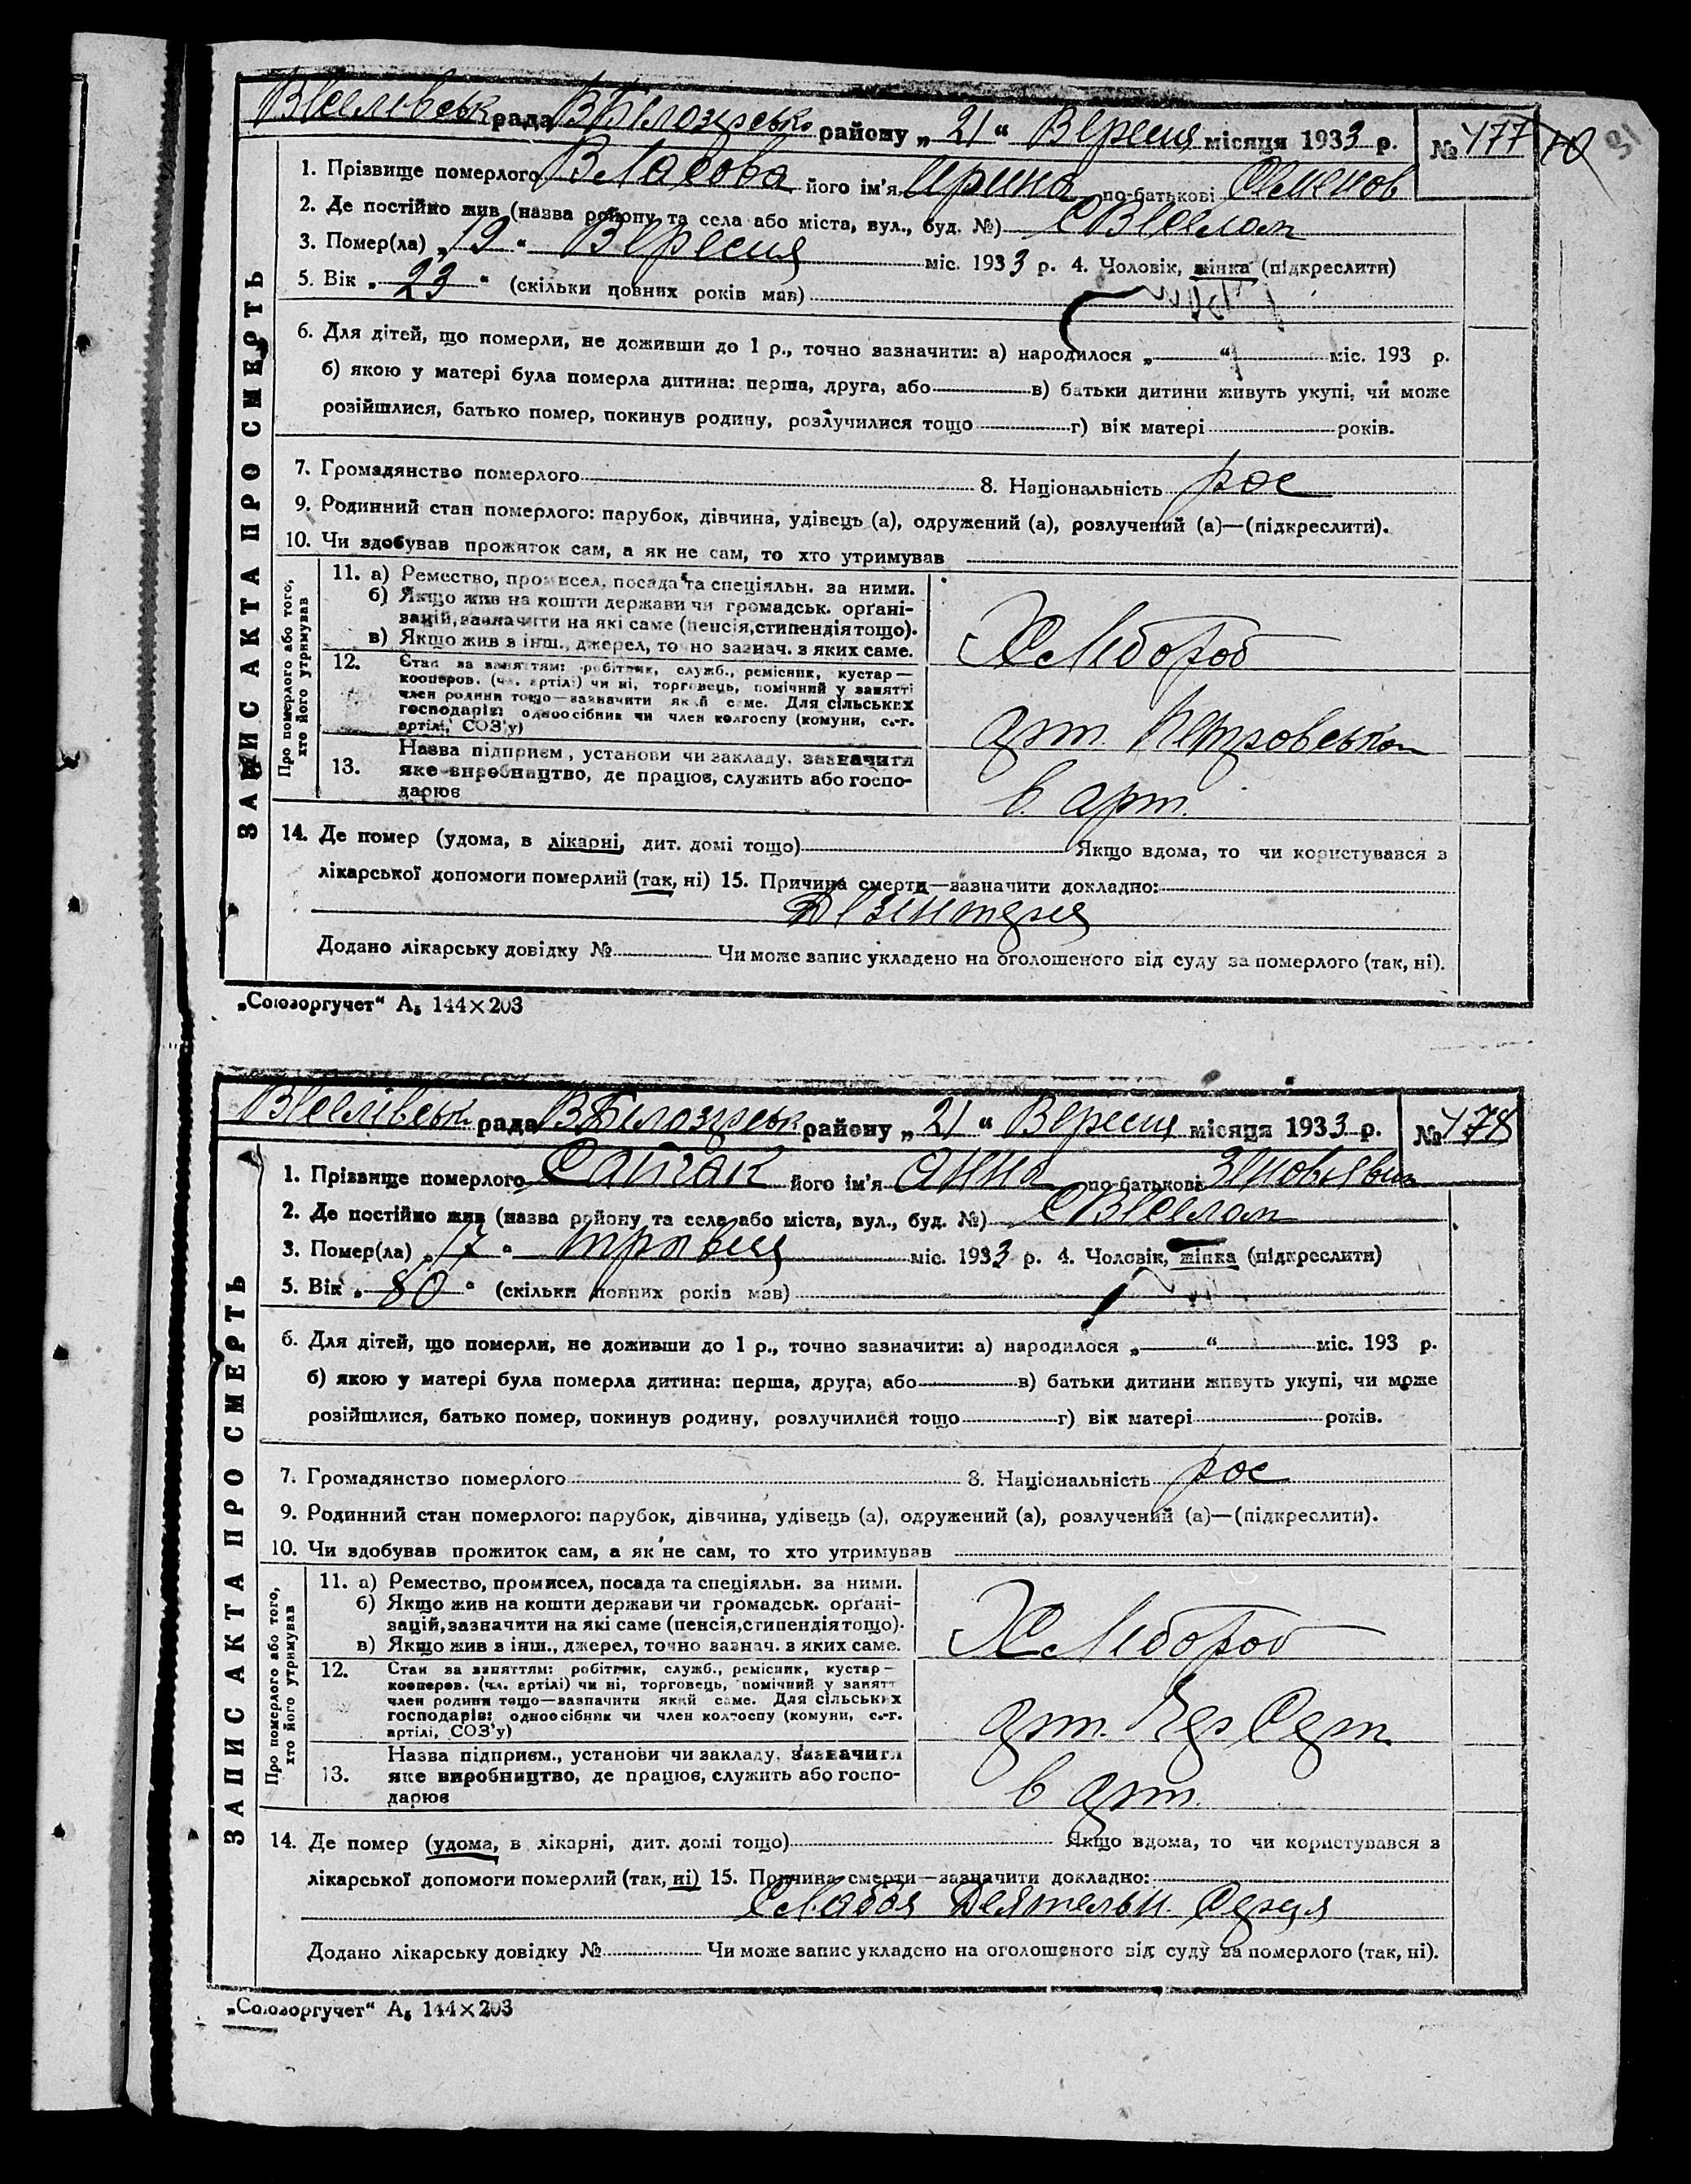 Веселівськ рада ВБілозірсько району „ 21 “ Вересня місяця 1933 р. № 477 10 31
1. Прізвище померлого Власова його ім'я Ирина по-батькові Семенов
2. Де постійно жив (назва району та села або міста, вул., буд. №) с Веселом
3. Помер(ла) „ 19 “ Вересня міс. 1933 р. 4. Чоловік, жінка (підкреслити)
5. Вік „ 23 “ (скільки повних років мав)
6. Для дітей, що померли, не доживши до 1 р., точно зазначити: а) народилося „ “ міс. 193 р.
б) якою у матері була померла дитина: перша, друга, або в) батьки дитини живуть укупі, чи може
розійшлися, батько помер, покинув родину, розлучилися тощо г) вік матері років.
7. Громадянство померлого 8. Національність рос
9. Родинний стан померлого: парубок, дівчина, удівець (а), одружений (а), розлучений (а)—(підкреслити).
10. Чи здобував прожиток сам, а як не сам, то хто утримував
ЗАПИС АКТА ПРО СМЕРТЬ
Про померлого або того,
хто його утримував
11. а) Ремество, промисел, посада та спеціяльн. за ними.
б) Якщо жив на кошти держави чи громадськ. орґані-
зацій, зазначити на які саме (пенсія, стипендія тощо).
в) Якщо жив з інш., джерел, точно зазнач. з яких саме.
Хлебороб
12. Стан за заняттям: робітник, служб., ремісник, кустар—
кооперов. (чл. артілі) чи ні, торговець, помічний у занятті
член родини тощо—зазначити який саме. Для сільських
господарів: одноосібник чи член колгоспу (комуни, с.-г.
артілі, СОЗ'у)
арт. Петровськом
13. Назва підприєм., установи чи закладу, зазначити
яке виробництво, де працює, служить або госпо-
дарює
в арт.
14. Де помер (удома, в лікарні, дит. домі тощо) Якщо вдома, то чи користувався з
лікарської допомоги померлий (так, ні) 15. Причина смерти—зазначити докладно:
Дезинтерия
Додано лікарську довідку № Чи може запис укладено на оголошеного від суду за померлого (так, ні).
„Союзоргучет“ А₅ 144×203
Веселівськ рада ВБілозірськ району „ 21 “ Вересня місяця 1933 р. № 478
1. Прізвище померлого Сайчак його ім'я Анна по-батькові Зеновьевна
2. Де постійно жив (назва району та села або міста, вул., буд. №) с Веселом
3. Помер(ла) „ 17 “ травня міс. 1933 р. 4. Чоловік, жінка (підкреслити)
5. Вік „ 80 “ (скільки повних років мав)
6. Для дітей, що померли, не доживши до 1 р., точно зазначити: а) народилося „ “ міс. 193 р.
б) якою у матері була померла дитина: перша, друга, або в) батьки дитини живуть укупі, чи може
розійшлися, батько помер, покинув родину, розлучилися тощо г) вік матері років.
7. Громадянство померлого 8. Національність рос
9. Родинний стан померлого: парубок, дівчина, удівець (а), одружений (а), розлучений (а)—(підкреслити).
10. Чи здобував прожиток сам, а як не сам, то хто утримував
ЗАПИС АКТА ПРО СМЕРТЬ
Про померлого або того,
хто його утримував
11. а) Ремество, промисел, посада та спеціяльн. за ними.
б) Якщо жив на кошти держави чи громадськ. орґані-
зацій, зазначити на які саме (пенсія, стипендія тощо).
в) Якщо жив з інш., джерел, точно зазнач. з яких саме.
Хлебороб
12. Стан за заняттям: робітник, служб., ремісник, кустар—
кооперов. (чл. артілі) чи ні, торговець, помічний у занятт
член родини тощо—зазначити який саме. Для сільських
господарів: одноосібник чи член колгоспу (комуни, с.-г.
артілі, СОЗ'у)
арт.
13. Назва підприєм., установи чи закладу, зазначити
яке виробництво, де працює, служить або госпо-
дарює
в арт.
14. Де помер (удома, в лікарні, дит. домі тощо) Якщо вдома, то чи користувався з
лікарської допомоги померлий (так, ні) 15. Причина смерти—зазначити докладно:
Слабая Деятельн. Серця
Додано лікарську довідку № Чи може запис укладено на оголошеного від суду за померлого (так, ні).
„Союзоргучет“ А₅ 144×203